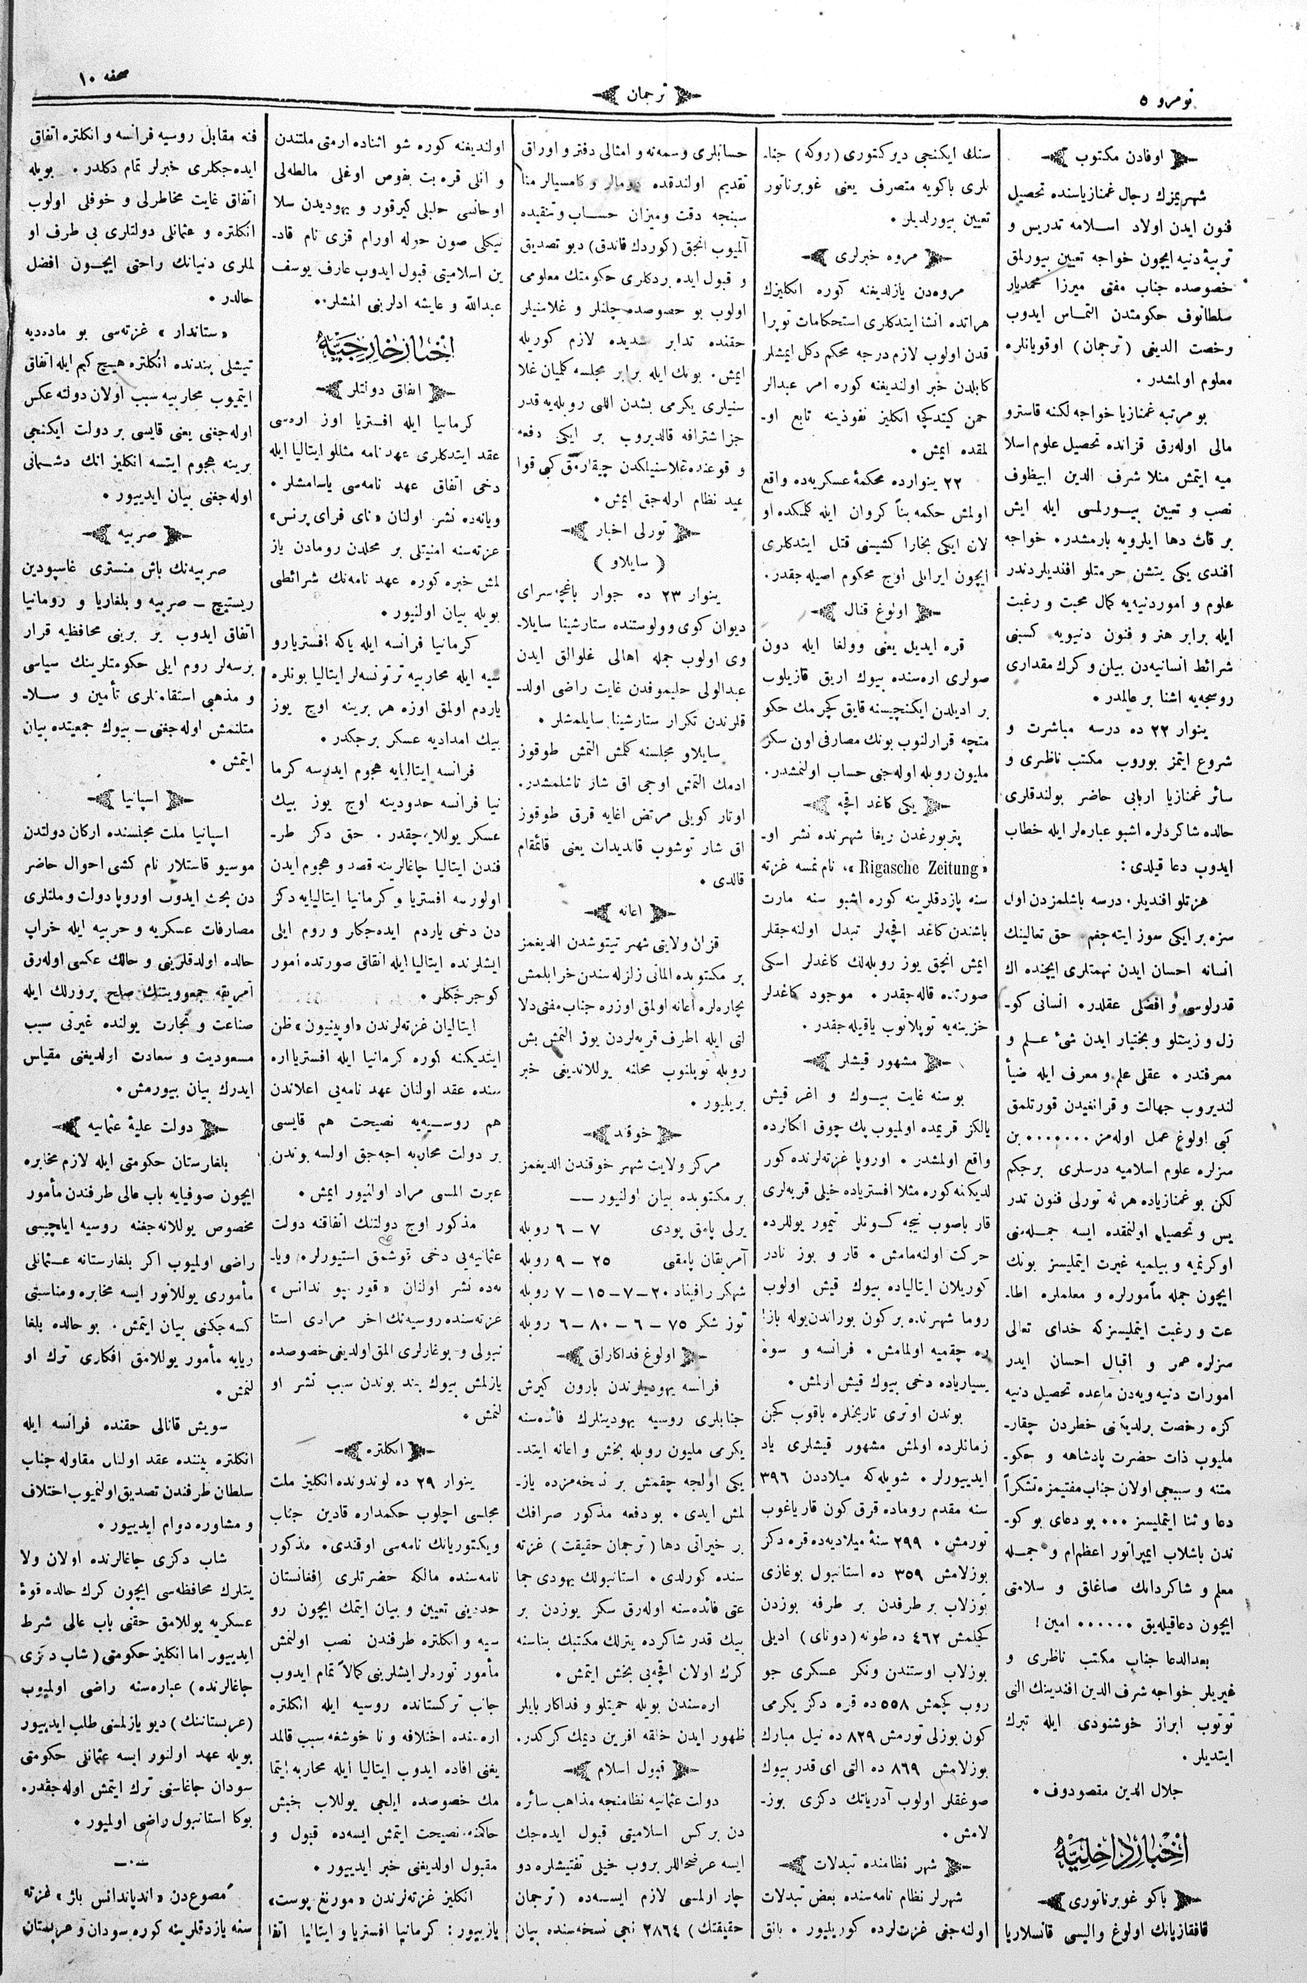 نومرو ٥
ترجمان
صحفه ١٠
اوفادن مكتوب
شهريمزك رجال غمنازياسنده تحصيل
فنون ايدن اولاد اسلامه تدريس و
تربيۀ دنيه ايچون خواجه تعيين بيورلمق
خصوصده جناب مفتى ميرزا محمديار
سلطانوف حكومتدن التماس ايدوب
وخصت الديغى (ترجمان) اوقويانلره
معلوم اولمشدر.
بو مرتبه غمنازيا خواجه لكنه قاسترو
مالى اوله‌رق قزانده تحصيل علوم اسلا
ميه ايتمش منلا شرف الدين ابيظوف
نصب و تعيين بيورلمسى ايله ايش
بر قات دها ايلرويه بارمشدر. خواجه
افندى يكى يتشن حرمتلو افنديلردندر
علوم و اموردنيه‌يه كمال محبت و رغبت
ايله برابر هنر و فنون دنيويه كسبنى
شرائط انسانيه‌دن بيلن و كرك مقدارى
روسجه‌يه اشنا بر عالمدر.
ينوار ٢٢ ده درسه مباشرت و
شروع ايتمز بوروب مكتب ناظرى و
سائر غمنازيا اربابى حاضر بولندقلرى
حالده شاكردلره اشبو عباره‌لر ايله خطاب
ايدوب دعا قيلدى:
هزتلو افنديلر. درسه باشلمزدن اول
سزه بر ايكى سوز ايته جغم. حق تعالينك
انسانه احسان ايدن نهمتلرى ايچنده اك
قدرلوسى و افضلى عقلدر. انسانى كو-
زل و زينتلو و بختيار ايدن شئ علم و
معرفتدر. عقلى علم و معرف ايله ضيأ
لنديروب جهالت و قرانغيدن قورتلمق
كبى اولوغ عمل اوله‌مز....... بن
سزلره علوم اسلاميه درسلرى برجكم
لكن بو غمنازياده هر نه تورلى فنون تدر
يس و تحصيل اولنمقده ايسه جمله‌سنى
اوكرنميه و بيلميه غيرت ايتمليسز بونك
ايچون جمله مأمورلره و معلملره اطا-
عت و رغبت ايتمليسز كه خداى تعالى
سزلره عمر و اقبال احسان ايدر
امورات دنيه ويه‌دن ماعده تحصيل دنيه
كزه رخصت برلديكنى خطردن چقار-
مليوب ذات حضرت پادشاهه و حكو-
متنه و سببجى اولان جناب مفتيمزه تشكراً
دعا و ثنا ايتمليسز ... بو دعاى بو كو-
ندن باشلاب ايمپراتور اعظم‌ام و جمله
معلم و شاكردانك صاغلق و سلامتى
ايچون دعاقيله‌يق ...... امين!
بعدالدعا جناب مكتب ناظرى و
غيريلر خواجه شرف الدين افندينك الى
توتوب ابراز خوشنودى ايله تبرك
ايتديلر.
جلال الدين مقصودوف.
اخبار داخليه
باكو غوبرناتورى
قافقازيانك اولوغ واليسى قانسلاريا
سنك ايكنجى ديركتورى (روكه) جنا-
بلرى باكويه متصرف يعنى غوبرناتور
تعيين بيورلديلر.
مروه خبرلرى
مروه‌دن يازلديغنه كوره انكليزك
هراتده انشا ايتدكلرى استحكامات توپرا
قدن اولوب لازم درجه محكم دكل ايمشلر
كابلدن خبر اولنديغنه كوره امر عبدالر
حمن كيتدكچه انكليز نفوذينه تابع او-
لمقده ايمش.
٢٢ ينوارده محكمۀ عسكريه‌ده واقع
اولمش حكمه بنأ كروان ايله كلمكده او
لان ايكى بخارا كشيىنى قتل ايتدكلرى
ايچون ايرانلى اوج محكوم اصيله جقدر.
اولوغ قنال
قره ايديل يعنى وولغا ايله دون
صولرى اره‌سنده بيوك اريق قازيلوب
بر اديلدن ايكنجيسنه قايق كچرمك حكو
متجه قرارلنوب بونك مصارفى اون سكز
مليون روبله اوله‌جنى حساب اولنمشدر.
يكى كاغد اقچه
پتربورغدن ريغا شهرنده نشر او-
« Rigasche Zeitung »، نام نمسه غزته
سنه يازدقلرينه كوره اشبو سنه مارت
باشندن كاغد اقچه‌لر تبدل اولنه‌جقلر
ايمش انچق يوز روبله‌لك كاغدلر اسكى
صورتده قاله‌جقدر. موجود كاغدلر
خزينه‌يه توپلانوب ياقيله‌جقدر.
مشهور قيشلر
بو سنه غايت بيوك و اغر قيش
يالكز قريمده اولميوب پك چوق اكالرده
واقع اولمشدر. اوروپا غزته‌لرنده كور
لديكنه كوره مثلا افسترياده خيلى قريه‌لرى
قار باصوب نيجه كونلر تيمور يوللرده
حركت اولنه‌مامش. قار و بوز نادر
كوريلان ايتالياده بيوك قيش اولوب
روما شهرنده بر كون بوراندن بوله باز
ره چقميه اولمامش. فرانسه و سوه
يسيارياده دخى بيوك قيش ارلمش.
بوندن اوترى تاريخلره باقوب كچن
زمانلرده اولمش مشهور قيشلرى ياد
ايدييورلر. شويله‌كه ميلاددن ٣٩٦
سنه مقدم روماده قرق كون قار ياغوب
تورمش. ٢٩٩ سنۀ ميلاديه‌ده قره دكز
بوزلامش ٣٥٩ ده استانبول بوغازى
توزلاب بر طرفدن بر طرفه بوزدن
كچلمش ٤٦٢ ده طونه (دوناى) اديلى
بوزلاب اوستندن ونكر عسكرى جو
روب كچمش ٥٥٨ ده قره دكز يكرمى
كون بوزلى تورمش ٨٢٩ ده نيل مبارك
بوزلامش ٨٦٩ ده التى اى قدر بيوك
صوغقلر اولوب آدرياتك دكزى بوز-
لامش.
شهر نظامنده تبدلات
شهرلر نظام نامه سنده بعض تبدلات
اولنه‌جغى غزت‌لرده كوريليور. بانق
حسابلرى وسمه‌نه و امثالى دفتر و اوراق
تقديم اولندقده دومالر و كامسيالر منا
سبنجه دقت و ميزان حساب و تنقيده
آلميوب انجق (كوردك قاندق) ديو تصديق
و قبول ايده بردكلرى حكومتك معلومى
اولوب بو حصوصده چلنلر و غلاسنيلر
حقنده تدابر شديده لازم كوريله
ايمش. بونك ايله برابر مجلسه كلميان غلا
سنيلرى يكرمى بشدن اللى روبله‌يه قدر
جزا شترافه قالديروب بر ايكى دفعه
و قوعنده غلاسنيلكدن چيقارمق كبى قوا
عيد نظام اوله‌جق ايمش.
تورلى اخبار
(سايلاو)
ينوار ٢٣ ده جوار باغچه‌سراى
ديوان كوى وولوستنده ستارشينا سايلا-
وى اولوب جمله اهالى غلوالق ايدن
عبدالولى حليموفدن غايت راضى اولد-
قلرندن تكرار ستارشينا سايلمشلر.
سايلاو مجلسنه كلمش التمش طوقوز
ادمك التمش اوجى اق شار تاشلمشدر.
اوتار كويلى مرتض اغايه قرق طوقوز
اق شار توشوب قانديدات يعنى قائمقام
قالدى.
اعانه
قزان ولايتى شهر تيتوشدن الديغمز
بر مكتوبده المانى زلزله سندن خرابلمش
بچاره‌لره اعانه اولمق اوزره جناب مفتى دلا
لتى ايله اطرف قريه‌لردن يوز التمش بش
روبله توپلنوب محلنه يوللانديغى خبر
بريليور.
خوقند
مركز ولايت شهر خوقندن الديغمز
بر مكتوبده بيان اولنيور ــ
يرلى پامق پودى ٧ – ٦ روبله
آمريقان پامقى ٢٥ – ٩ روبله
شهكر رافيناد ٢٠–٧–١٥–٧ روبله
توز شكر ٧٥–٦–٨٠–٦ روبله
اولوغ فداكارلق
فرانسه يهوديلرندن بارون كيرش
جنابلرى روسيه يهودينلرك فائده‌سنه
يكرمى مليون روبله بخش و اعانه ايتد-
يكى اولجه چقمش بر نسخه‌مزده ياز-
لمش ايدى. بو دفعه مذكور صرافك
بر خيراتى دها (ترجمان حقيقت) غزته
سنده كورلدى. استانبولك يهودى جما
عتى فائده‌سنه اوله‌رق سكز يوزدن بر
بيك قدر شاكرده يتزلك مكتبك بناسنه
كرك اولان اقچه‌يى بخش ايتمش.
اره‌سندن بويله حميتلو و فداكار بايلر
ظهور ايدن خلقه افرين ديمك كركدر.
قبول اسلام
دولت عثمانيه نظامنجه مذاهب سائره
دن بر كس اسلاميتى قبول ايده‌جك
ايسه عرضحاللر بروب خيلى تفتيشلره دو
چار اولمسى لازم ايسه‌ده (ترجمان
حقيقتك) ٢٨٦٤ نجى نسخه‌سنده بيان
اولنديغنه كوره شو اثناده ارمنى ملتندن
و انلى قره بت بغوص اوغلى مالطه‌لى
اوحانسى حلبلى كيرقور و يهوديدن سلا
نيكلى صون حرله اورام قزى نام قاد-
ين اسلاميتى قبول ايدوب عارف يوسف
عبدالله و عايشه ادلربنى المشلر.
اخبار خارجيه
اتفاق دولتلر
كرمانيا ايله افستريا اوز اره‌سى
عقد ايتدكلرى عهد نامه مثللو ايتاليا ايله
دخى اتفاق عهد نامه‌سى ياسامشلر.
ويانه‌ده نشر اولنان «ناى فراى برنس»
عزته‌سنه امنيتلى بر محلدن رومادن ياز
لمش خبره كوره عهد نامه‌نك شرائطى
بويله بيان اولنيور.
كرمانيا فرانسه ايله ياكه افستريا رو
سيه ايله محاربيه ترتونسه‌لر ايتاليا بونلره
ياردم اولمق اوزه هر برينه اوج يوز
بيك امداديه عسكر برجكدر.
فرانسه ايتاليايه هجوم ايدرسه كرما
نيا فرانسه حدودينه اوج يوز بيك
عسكر يوللايه‌چقدر. حق دكز طر-
فندن ايتاليا جاغالرينه قصد و هجوم ايدن
اولورسه افستريا و كرمانيا ايتاليايه دكز
دن دخى ياردم ايده‌جكلر و روم ايلى
ايشلرنده ايتاليا ايله اتفاق صورتده امور
كوجرجكلر.
ايتاليان غزته‌لرندن «اوپينيون» ظن
ايتديكنه كوره كرمانيا ايله افستريا اره
سنده عقد اولنان عهد نامه‌يى اعلاندن
هم روسيه‌يه نصيحت هم قايسى
بر دولت محاربه اجه‌جق اولسه بوندن
عبرت المسى مراد اولنيور ايمش.
مذكور اوج دولتنك اتفاقنه دولت
عثمانيه‌يى دخى قوشمق استيورلر. ويا-
نه‌ده نشر اولنان «قور سپو ندانس»
غزته‌سنده روسيه‌نك اخر مرادى استا
نبولى و بوغازلرى المق اولديغى خصوصده
يازلمش بيوك بند بوندن سبب نشر او
لنمش.
انكلتره
ينوار ٢٩ ده لوندونده انكليز ملت
مجلسى اچلوب حكمداره قادين جناب
ويكتوريانك نامه‌سى اوقندى. مذكور
نامه‌سنده مالكه حضرتلرى افغانستان
حددينى تعيين و بيان ايتمك ايچون رو
سيه و انكلتره طرفندن نصب اولنمش
مأمور توره‌لر ايشلرينى كمالاً تمام ايدوب
جانب تركستانده روسيه ايله انكلتره
اره‌سنده اختلافه و نا خوشغه سبب قالمد
يغنى افاده ايدوب ايتاليا ايله محاربه ايتما
مك خصوصده ايلجى يوللاب حبش
حاكمنه نصيحت ايتمش ايسه‌ده قبول و
مقبول اولديغى خبر ايدييور.
انكليز غزته‌لرندن «مورنغ پوست»،
يازييور: كرمانيا افستريا و ايتاليا اتفا
قنه مقابل روسيه فرانسه و انكلتره اتفاق
ايده‌جكلرى خبرلر تمام دكلدر. بويله
اتفاق غايت مخاطرلى و خوفلى اولوب
انكلتره و عثمانلى دولتلرى بى طرف او
لملرى دنيانك راحتى ايچون افضل
حالدر.
«ستاندار» غزته‌سى بو مادديه
تيشلى بندنده انكلتره هيچ كيم ايله اتفاق
ايتميوب محاربيه سبب اولان دولته عكس
اوله‌جغنى يعنى قايسى بر دولت ايكنجى
برينه هجوم ايتسه انكليز انك دشمانى
اوله‌جغنى بيان ايدييور.
صربيه
صربيه‌نك باش منسترى غاسپودين
ريستيچ – صربيه و بلغاريا و رومانيا
اتفاق ايدوب بر برينى محافظيه قرار
برسه‌لر روم ايلى حكومتلرينك سياسى
و مذهبى استقامتلرى تأمين و سلا-
متلنمش اوله‌جغنى – بيوك جمعيتده بيان
ايتمش.
اسپانيا
اسپانيا ملت مجلسنده اركان دولتدن
موسيو قاستلار نام كشى احوال حاضر
دن بحث ايدوب اوروپا دولت و ملتلرى
مصارفات عسكريه و حربيه ايله خراب
حالده اولدقلرينى و حالك عكسى اوله‌رق
آمريقه جمهوويتنك صلح پرورلك ايله
صناعت و تجارت يولنده غيرتى سبب
مسعوديت و سعادت ارلديغنى مقياس
ايدرك بيان بيورمش.
دولت عليۀ عثمانيه
بلغارستان حكومتى ايله لازم مخابره
ايچون صوفيايه باب عالى طرفندن مأمور
مخصوص يوللانه‌جغنه روسيه ايلچيسى
راضى اولميوب اكر بلغارستانه عثمانلى
مأمورى يوللانور ايسه مخابره و مناسبتى
كسه جكنى بيان ايتمش. بو حالده بلغا
ريايه مأمور يوللامق افكارى ترك او
لنمش.
سويش قنالى حقنده فرانسه ايله
انكلتره بيننده عقد اولنان مقاوله جناب
سلطان طرفندن تصديق اولنميوب اختلاف
و مشاوره دوام ايدييور.
شاب دكزى جاغالرنده اولان ولا
يتلرك محافظه‌سى ايچون كرك حالده قوۀ
عسكريه يوللامق حقنى باب عالى شرط
ايدييور اما انكليز حكومتى (شاب دكزى
جاغالرنده) عباره‌سنه راضى اولميوب
(عربستاننك) ديو يازلمسنى طلب ايدييور
بويله عهد اولنور ايسه عثمانلى حكومتى
سودان جاغاسنى ترك ايتمش اوله‌جقدر.
بوكا استانبول راضى اولميور.
مصوع‌دن «اندپاندانس باژ» غزته
سنه يازدقلرينه كوره سودان و عربستان